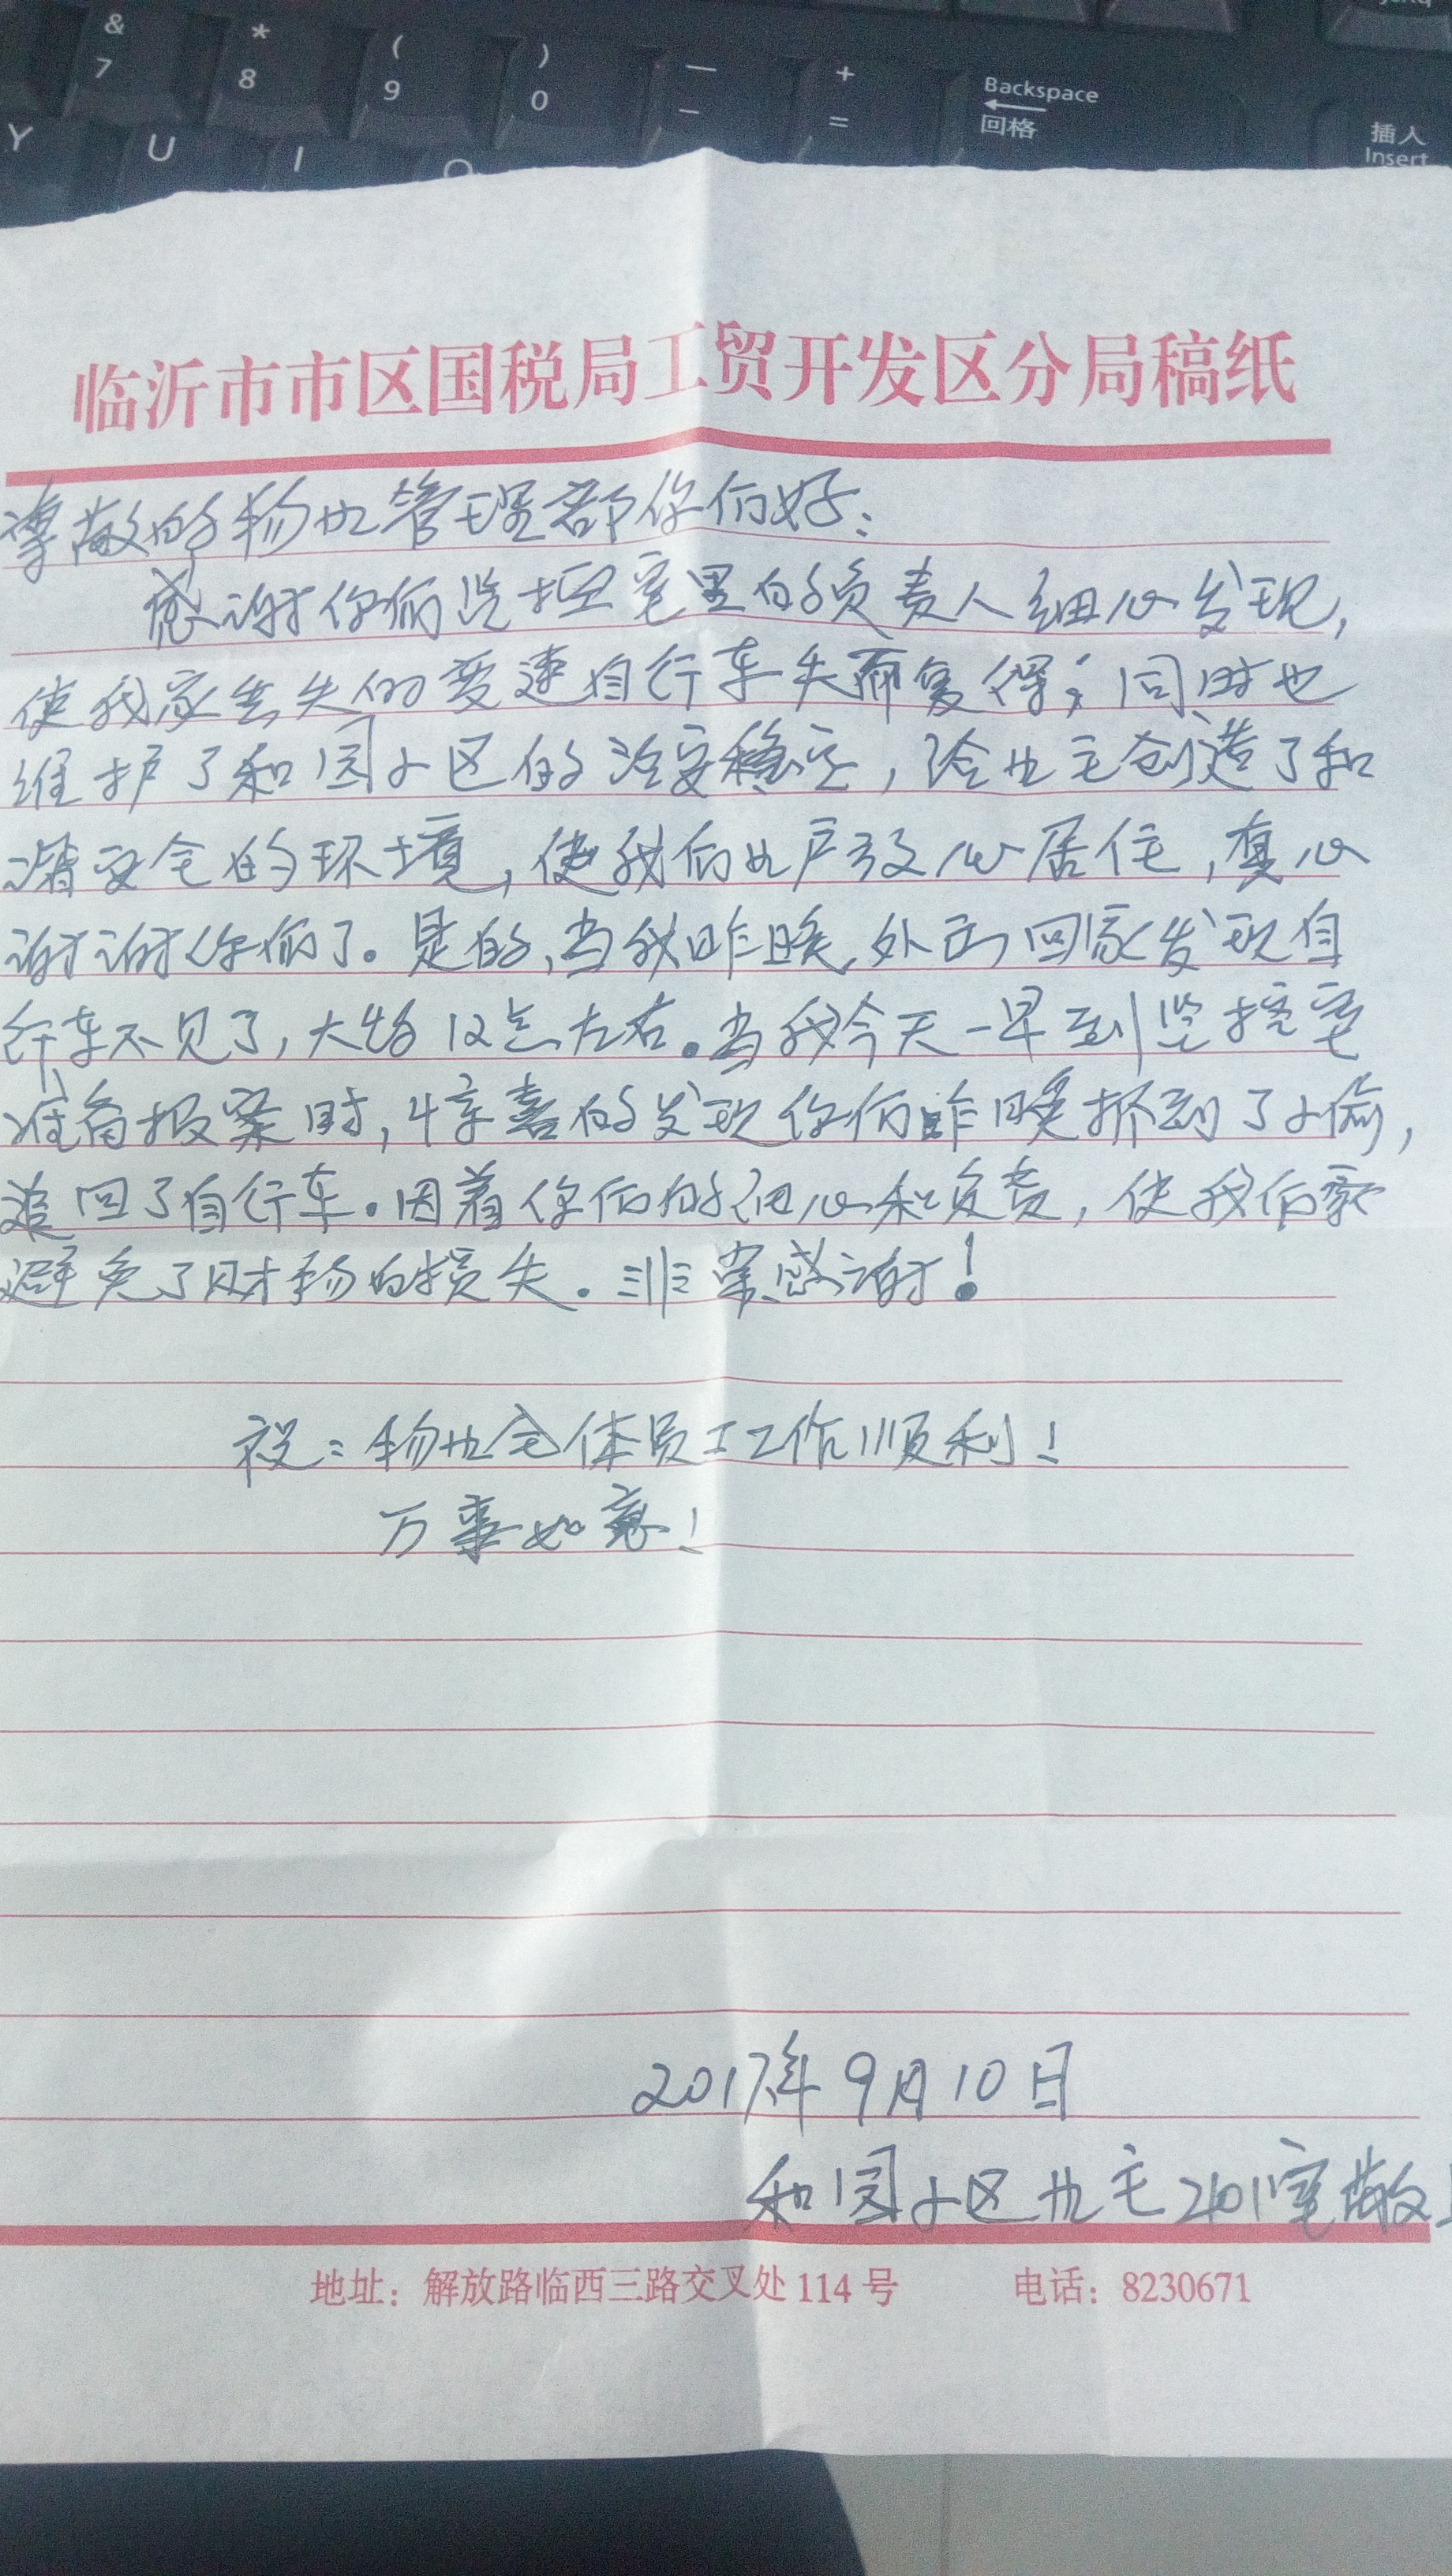 & * ( ) — +
7 8 9 0 - = Backspace
回格
插入
Insert
Y U I O
临沂市市区国税局工贸开发区分局稿纸
尊敬的物业管理部你们好:
感谢你们监控室里的负责人细心发现,
使我家丢失的变速自行车失而复得;同时也
维护了和园小区的治安稳定,给业主创造了和
谐安全的环境,使我们业户放心居住,真心
谢谢你们了。是的,当我昨晚外出回家发现自
行车不见了,大约12点左右。当我今天一早到监控室
准备报案时,惊喜的发现你们昨晚抓到了小偷,
追回了自行车。因着你们的细心和负责,使我们家
避免了财物的损失。非常感谢!
祝:物业全体员工工作顺利!
万事如意!
2017年9月10日
和园小区业主2401室敬上
地址:解放路临西三路交叉处114号 电话:8230671